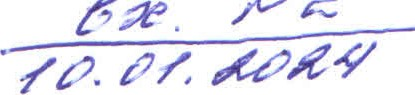 вх. №
10.01.2024